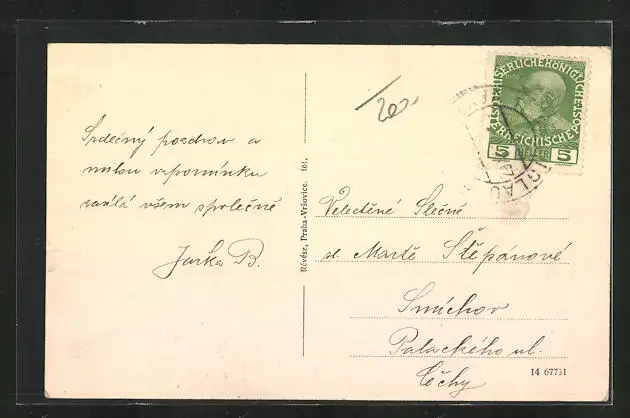 Srdečný pozdrav a
milou vzpomínku
zasílá všem společně
Jarka B.
Révész, Praha-Vršovice. 161.
200
KAISERLICHE KÖNIGLICHE
ÖSTERREICHISCHE POST
5 HELLER 5
IGLAU
Velectěné Slečně
sl. Martě Štěpánové
Smíchov
Palackého ul.
Čechy
14 67731